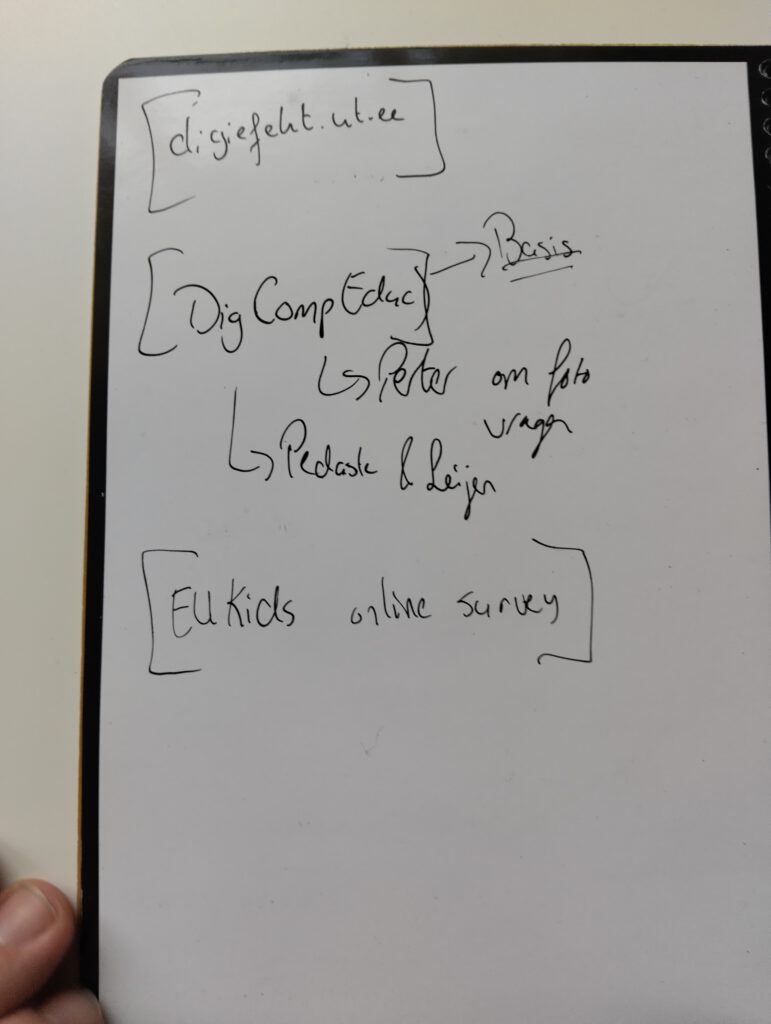 [digiefekt.ut.ee]
[DigCompEduc] → Basis
↳ Peter om foto
vragen
↳ Pedaste & Leijen
[EU Kids online survey]